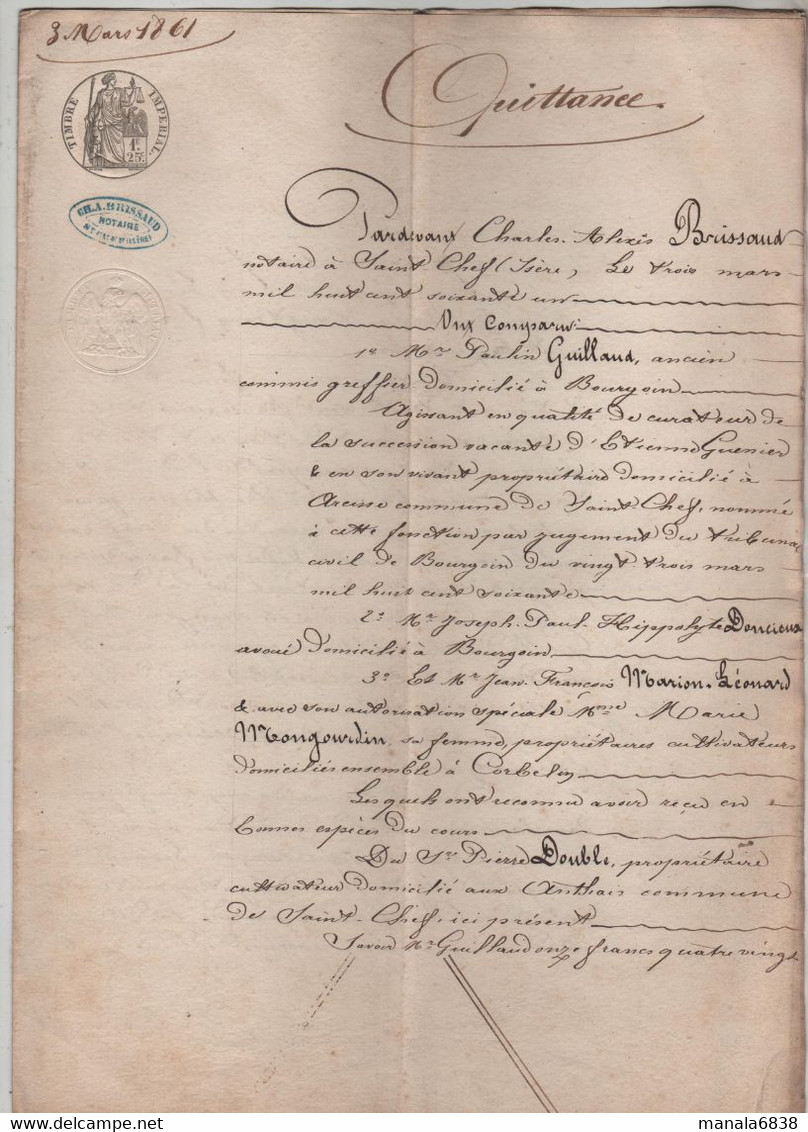 3 Mars 1861
Quittance.
TIMBRE IMPERIAL.
1F.
25c.
CH.A. BRISSAUD
NOTAIRE
Pardevant Charles-Alexis Brissaud
notaire à Saint Chef (Isère, Le trois mars
mil huit cent soixante un
Ont Comparu:
1º Mr Paulin Guillaud, ancien
commis greffier domicilié à Bourgoin
Agissant en qualité de curateur de
la succession vacante d'Etienne Guenier
& en son vivant propriétaire domicilié à
Arcisse commune de Saint-Chef, nommé
à cette fonction par jugement du tribunal
civil de Bourgoin du vingt-trois mars
mil huit cent soixante
2º Mr Joseph-Paul-Hippolyte Doncieux
avoué domicilié à Bourgoin
3º Et Mr Jean-François Marion-Léonard
& avec son autorisation spéciale Mme Marie
Mongourdin, sa femme, propriétaires cultivateurs
domiciliés ensemble à Corbelin
Lesquels ont reconnu avoir reçu en
bonnes espèces du cours
Du Sr Pierre Double, propriétaire
cultivateur domicilié aux Anthais commune
de Saint-Chef, ici présent
Savoir Mr Guillaud onze francs quatre vingt
manala6838